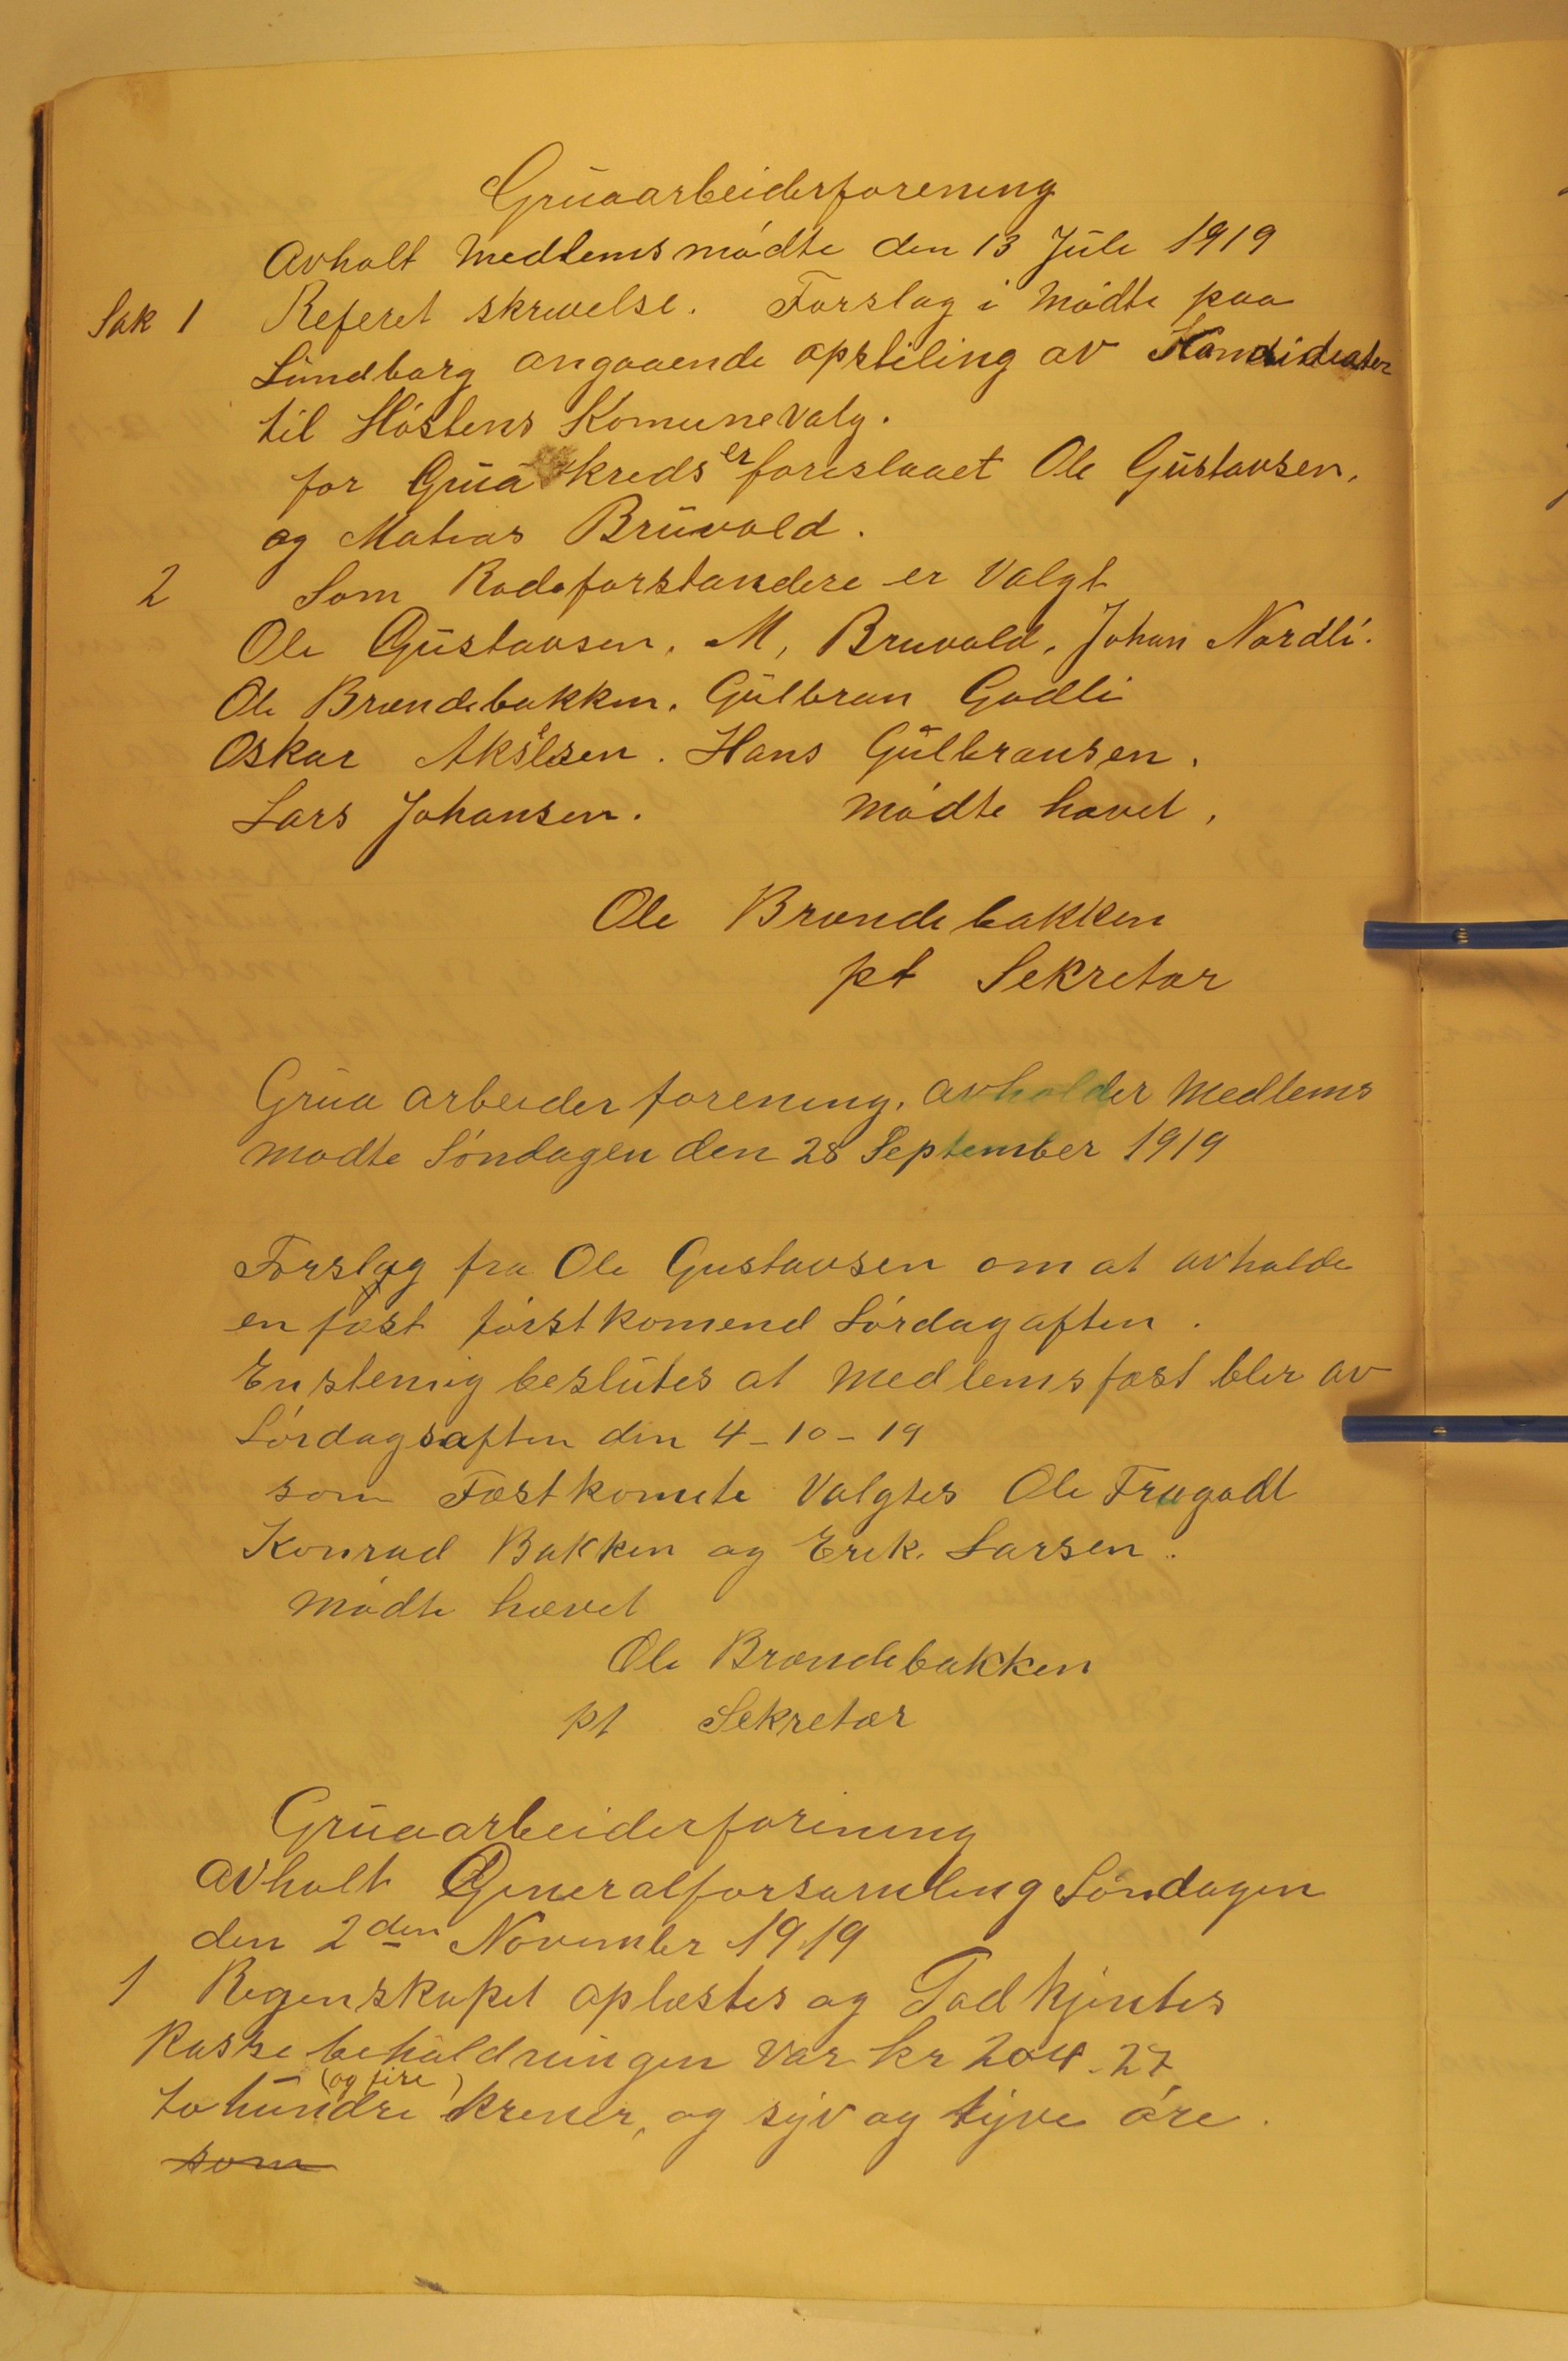 Gruaarbeiderforening
Avholt Medlemsmødte den 13 Juli 1919
Sak 1 Referet skrivelse. Forslag i Mødte paa
Lundborg angaaende opstiling av Kandidater
til Høstens Komunevalg.
for Grua kreds er foreslaaet Ole Gustavsen.
og Matias Bruvold.
2 Som Rodeforstandere er Valgt
Ole Gustavsen, M, Bruvold, Johan Nordli.
Ole Brændebakken. Gulbran Godli
Oskar Akselsen. Hans Gulbransen.
Lars Johansen. Mødte hævet.
Ole Brændebakken
pt Sekretær
Grua arbeider forening. avholder Medlems
mødte Søndagen den 28 September 1919
Forslag fra Ole Gustavsen om at avholde
en fæst førstkomend Lørdagaften.
Enstemig beslutes at Medlemsfæst blir av
Lørdagsaften den 4-10-19
som Fæstkomite Valgtes Ole Fragodt
Konrad Bakken og Erik. Larsen.
Mødte hævet
Ole Brændebakken
pt Sekretær
Gruaarbeiderforening
avholt Generalforsamling Søndagen
den 2den November 1919
1 Regenskapet oplæstes og Godkjentes
Kassebeholdningen var kr 204.27
to hundre (og fire) kroner, og syv og tyve øre.
som